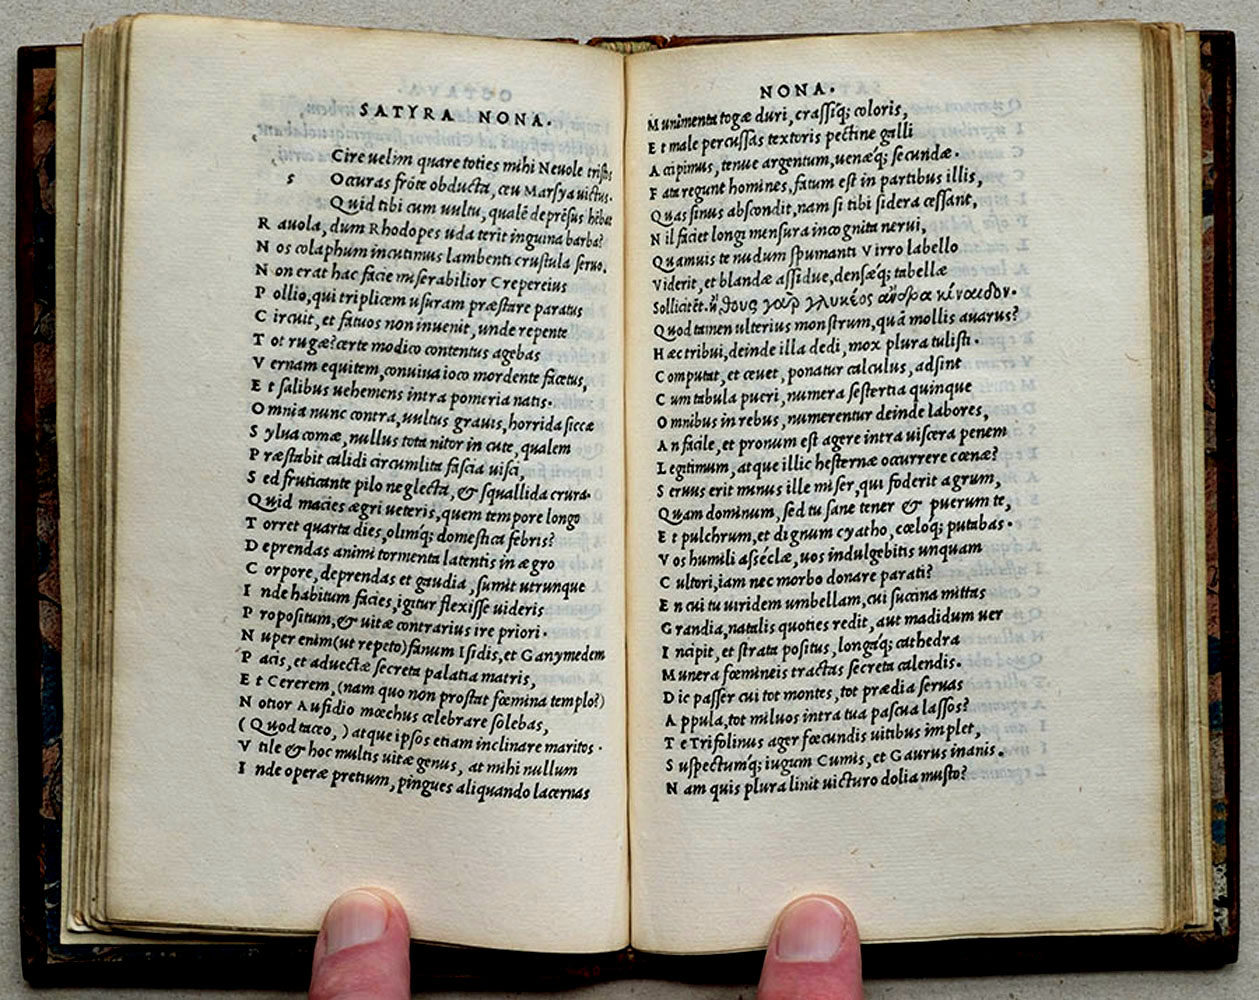 SATYRA NONA.
s
Cire uelim quare toties mihi Neuole tristis
Occuras frōte obducta, ceu Marsya uictus.
Quid tibi cum uultu, qualē deprēsus hēbat
Rauola, dum Rhodopes uda terit inguina barba?
Nos colaphum incutinus lambenti crustula seruo.
Non erat hac facie miserabilior Crepereius
Pollio, qui triplicem usuram præstare paratus
Circuit, et fatuos non inuenit, unde repente
Tot rugæ? certe modico contentus agebas
Vernam equitem, conuiua ioco mordente facetus,
Et salibus uehemens intra pomeria natis.
Omnia nunc contra, uultus grauis, horrida siccæ
Sylua comæ, nullus tota nitor in cute, qualem
Præstabit calidi circumlita fascia uisci,
Sed frutiante pilo neglecta, & squallida crura.
Quid macies ægri ueteris, quem tempore longo
Torret quarta dies, olimq́; domestica febris?
Deprendas animi tormenta latentis in ægro
Corpore, deprendas et gaudia, sumit utrunque
Inde habitum facies, igitur flexisse uideris
Propositum, & uitæ contrarius ire priori.
Nuper enim (ut repeto) fanum Isidis, et Ganymedem
Pacis, et aduectæ secreta palatia matris,
Et Cererem, (nam quo non prostat fœmina templo?)
Notior Aufidio mœchus celebrare solebas,
(Quod taceo,) atque ipsos etiam inclinare maritos.
Vtile & hoc multis uitæ genus, at mihi nullum
Inde operæ pretium, pingues aliquando lacernas
NONA.
Munimenta togæ duri, crassiq́; coloris,
Et male percussas textoris pectine galli
Accipimus, tenue argentum, uenæq́; secundæ.
Fata regunt homines, fatum est in partibus illis,
Quas sinus abscondit, nam si tibi sidera cessant,
Nil faciet longi mensura incognita nerui,
Quamuis te nudum spumanti Virro labello
Viderit, et blandæ assidue, densæq́; tabellæ
Sollicitēt. ἤθους γαὺρ γλυκέος ανδρα κίναιδον.
Quod tamen ulterius monstrum, quā mollis auarus?
Hæc tribui, deinde illa dedi, mox plura tulisti.
Computat, et ceuet, ponatur calculus, adsint
Cum tabula pueri, numera sestertia quinque
Omnibus in rebus, numerentur deinde labores,
An facile, et pronum est agere intra uiscera penem
Legitimum, atque illic hesternæ occurrere cœnæ?
Seruus erit minus ille miser, qui foderit agrum,
Quam dominum, sed tu sane tener & puerum te,
Et pulchrum, et dignum cyatho, cœloq́; putabas.
Vos humili asséclæ, uos indulgebitis unquam
Cultori, iam nec morbo donare parati?
En cui tu uiridem umbellam, cui succina mittas
Grandia, natalis quoties redit, aut madidum uer
Incipit, et strata positus, longaq́; cathedra
Munera fœmineis tractas secreta calendis.
Dic passer cui tot montes, tot prædia seruas
Appula, tot miluos intra tua pascua lassos?
Te Trifolinus ager fœcundis uitibus implet,
Suspectumq́; iugum Cumis, et Gaurus inanis.
Nam quis plura linit uicturo dolia musto?